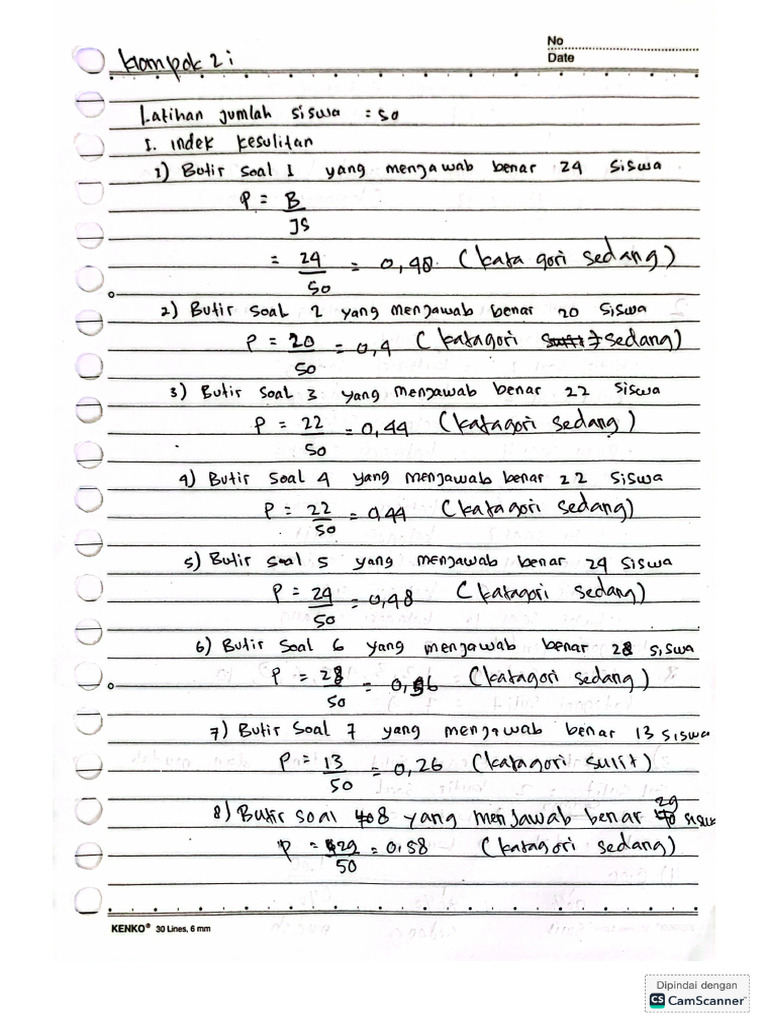 No
Date
Kompok 2 i
Latihan jumlah siswa = 50
I. indek kesulitan
1) Butir soal 1 yang menjawab benar 24 siswa
P = B
JS
= 24 = 0,48 (kata gori sedang)
50
2) Butir soal 2 yang menjawab benar 20 siswa
P = 20 = 0,4 (katagori sedang)
50
3) Butir soal 3 yang menjawab benar 22 siswa
P = 22 = 0,44 (katagori sedang)
50
4) Butir soal 4 yang menjawab benar 22 siswa
P = 22 = 0,44 (katagori sedang)
50
5) Butir soal 5 yang menjawab benar 24 siswa
P = 24 = 0,48 (katagori sedang)
50
6) Butir soal 6 yang menjawab benar 28 siswa
P = 28 = 0,56 (katagori sedang)
50
7) Butir soal 7 yang menjawab benar 13 siswa
P = 13 = 0,26 (katagori sulit)
50
8) Butir soal 8 yang menjawab benar 29 siswa
P = 29 = 0,58 (katagori sedang)
50
KENKO® 30 Lines, 6 mm
Dipindai dengan
CS CamScanner